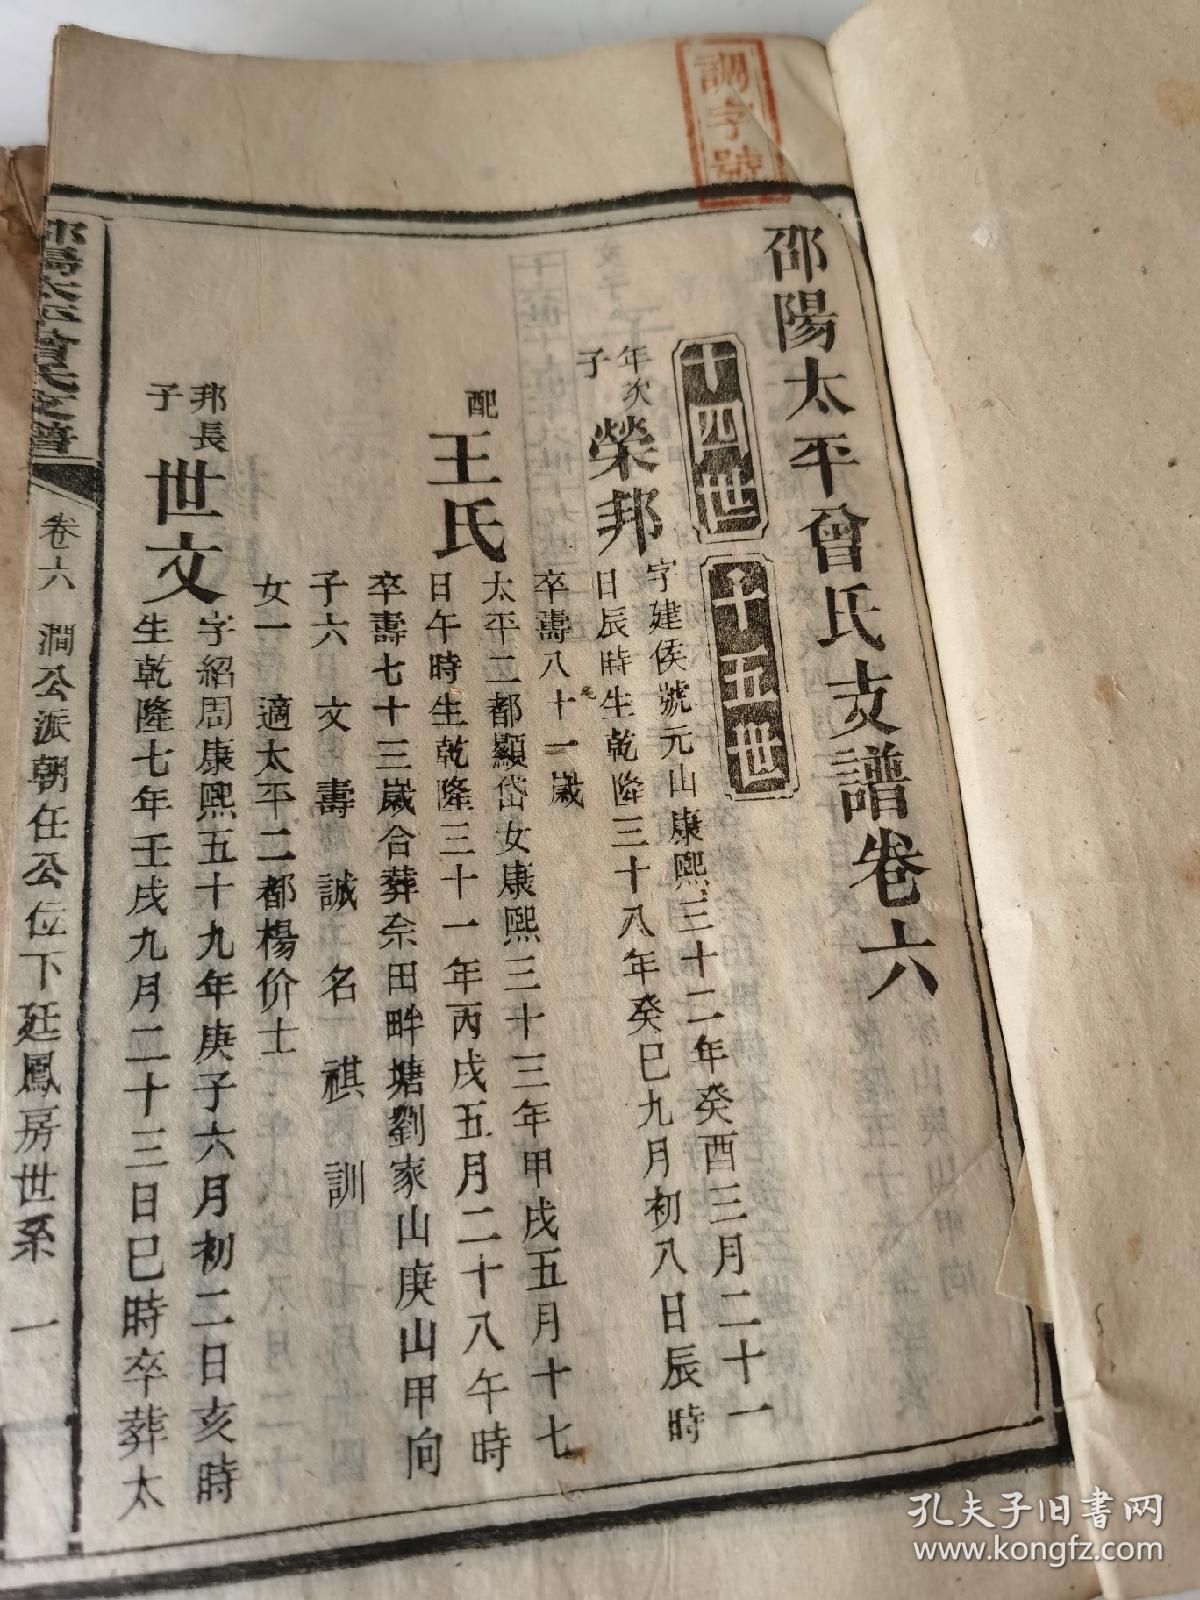 調字號
邵陽太平曾氏支譜卷六
十四世 十五世
年次子
榮邦
字建侯號元山康熙三十二年癸酉三月二十一
日辰時生乾隆三十八年癸巳九月初八日辰時
卒壽八十一歲
配
王氏
太平二都顯岱女康熙三十三年甲戌五月十七
日午時生乾隆三十一年丙戌五月二十八午時
卒壽七十三歲合葬佘田畔塘劉家山庚山甲向
子六 文 壽 誠 名 祺 訓
女一 適太平二都楊价士
邦長子
世文
字紹周康熙五十九年庚子六月初二日亥時
生乾隆七年壬戌九月二十三日巳時卒葬太
邵陽太平曾氏支譜
卷六 澗公派朝任公位下廷鳳房世系 一
孔夫子旧书网
www.kongfz.com